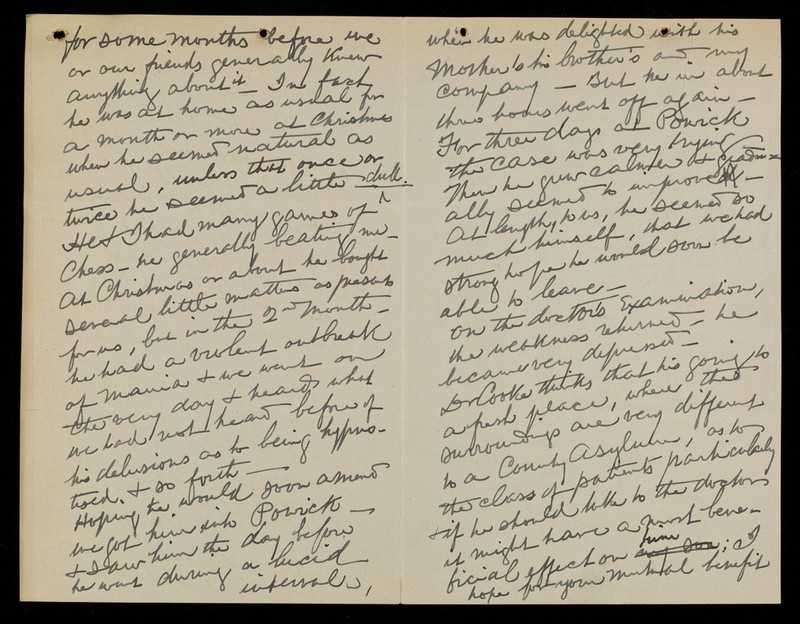 for some months before we
or our friends generally knew
anything about it — In fact
he was at home as usual for
a month or more at Christmas
when he seemed natural as
usual, unless that once or
twice he seemed a little dull.
He & I had many games of
Chess — he generally beating me —
At Christmas or about he bought
several little matters as presents
for us, but in the 2nd month —
he had a violent outbreak
of mania & we went on
the very day & heard what
we had not heard before of
his delusions as to being hypno-
tised. & so forth —
Hoping he would soon amend
we got him into Powick —
& I saw him the day before
he went during a lucid
interval,
when he was delighted with his
Mother's his brother's and my
company — But he in about
three hours went off again —
For three days at Powick
the case was very trying
Then he grew calmer & gradu-
ally seemed to improve —
At length, to us, he seemed so
much himself, that we had
strong hope he would soon be
able to leave —
On the doctor's Examination,
the weakness returned — he
became very depressed —
Dr Cooke thinks that his going to
a fresh place, where the
surroundings are very different
to a County Asylum, as to
the class of patients particularly
& if he should take to the doctors
it might have a most bene-
ficial effect on him; I
hope for your mutual benefit